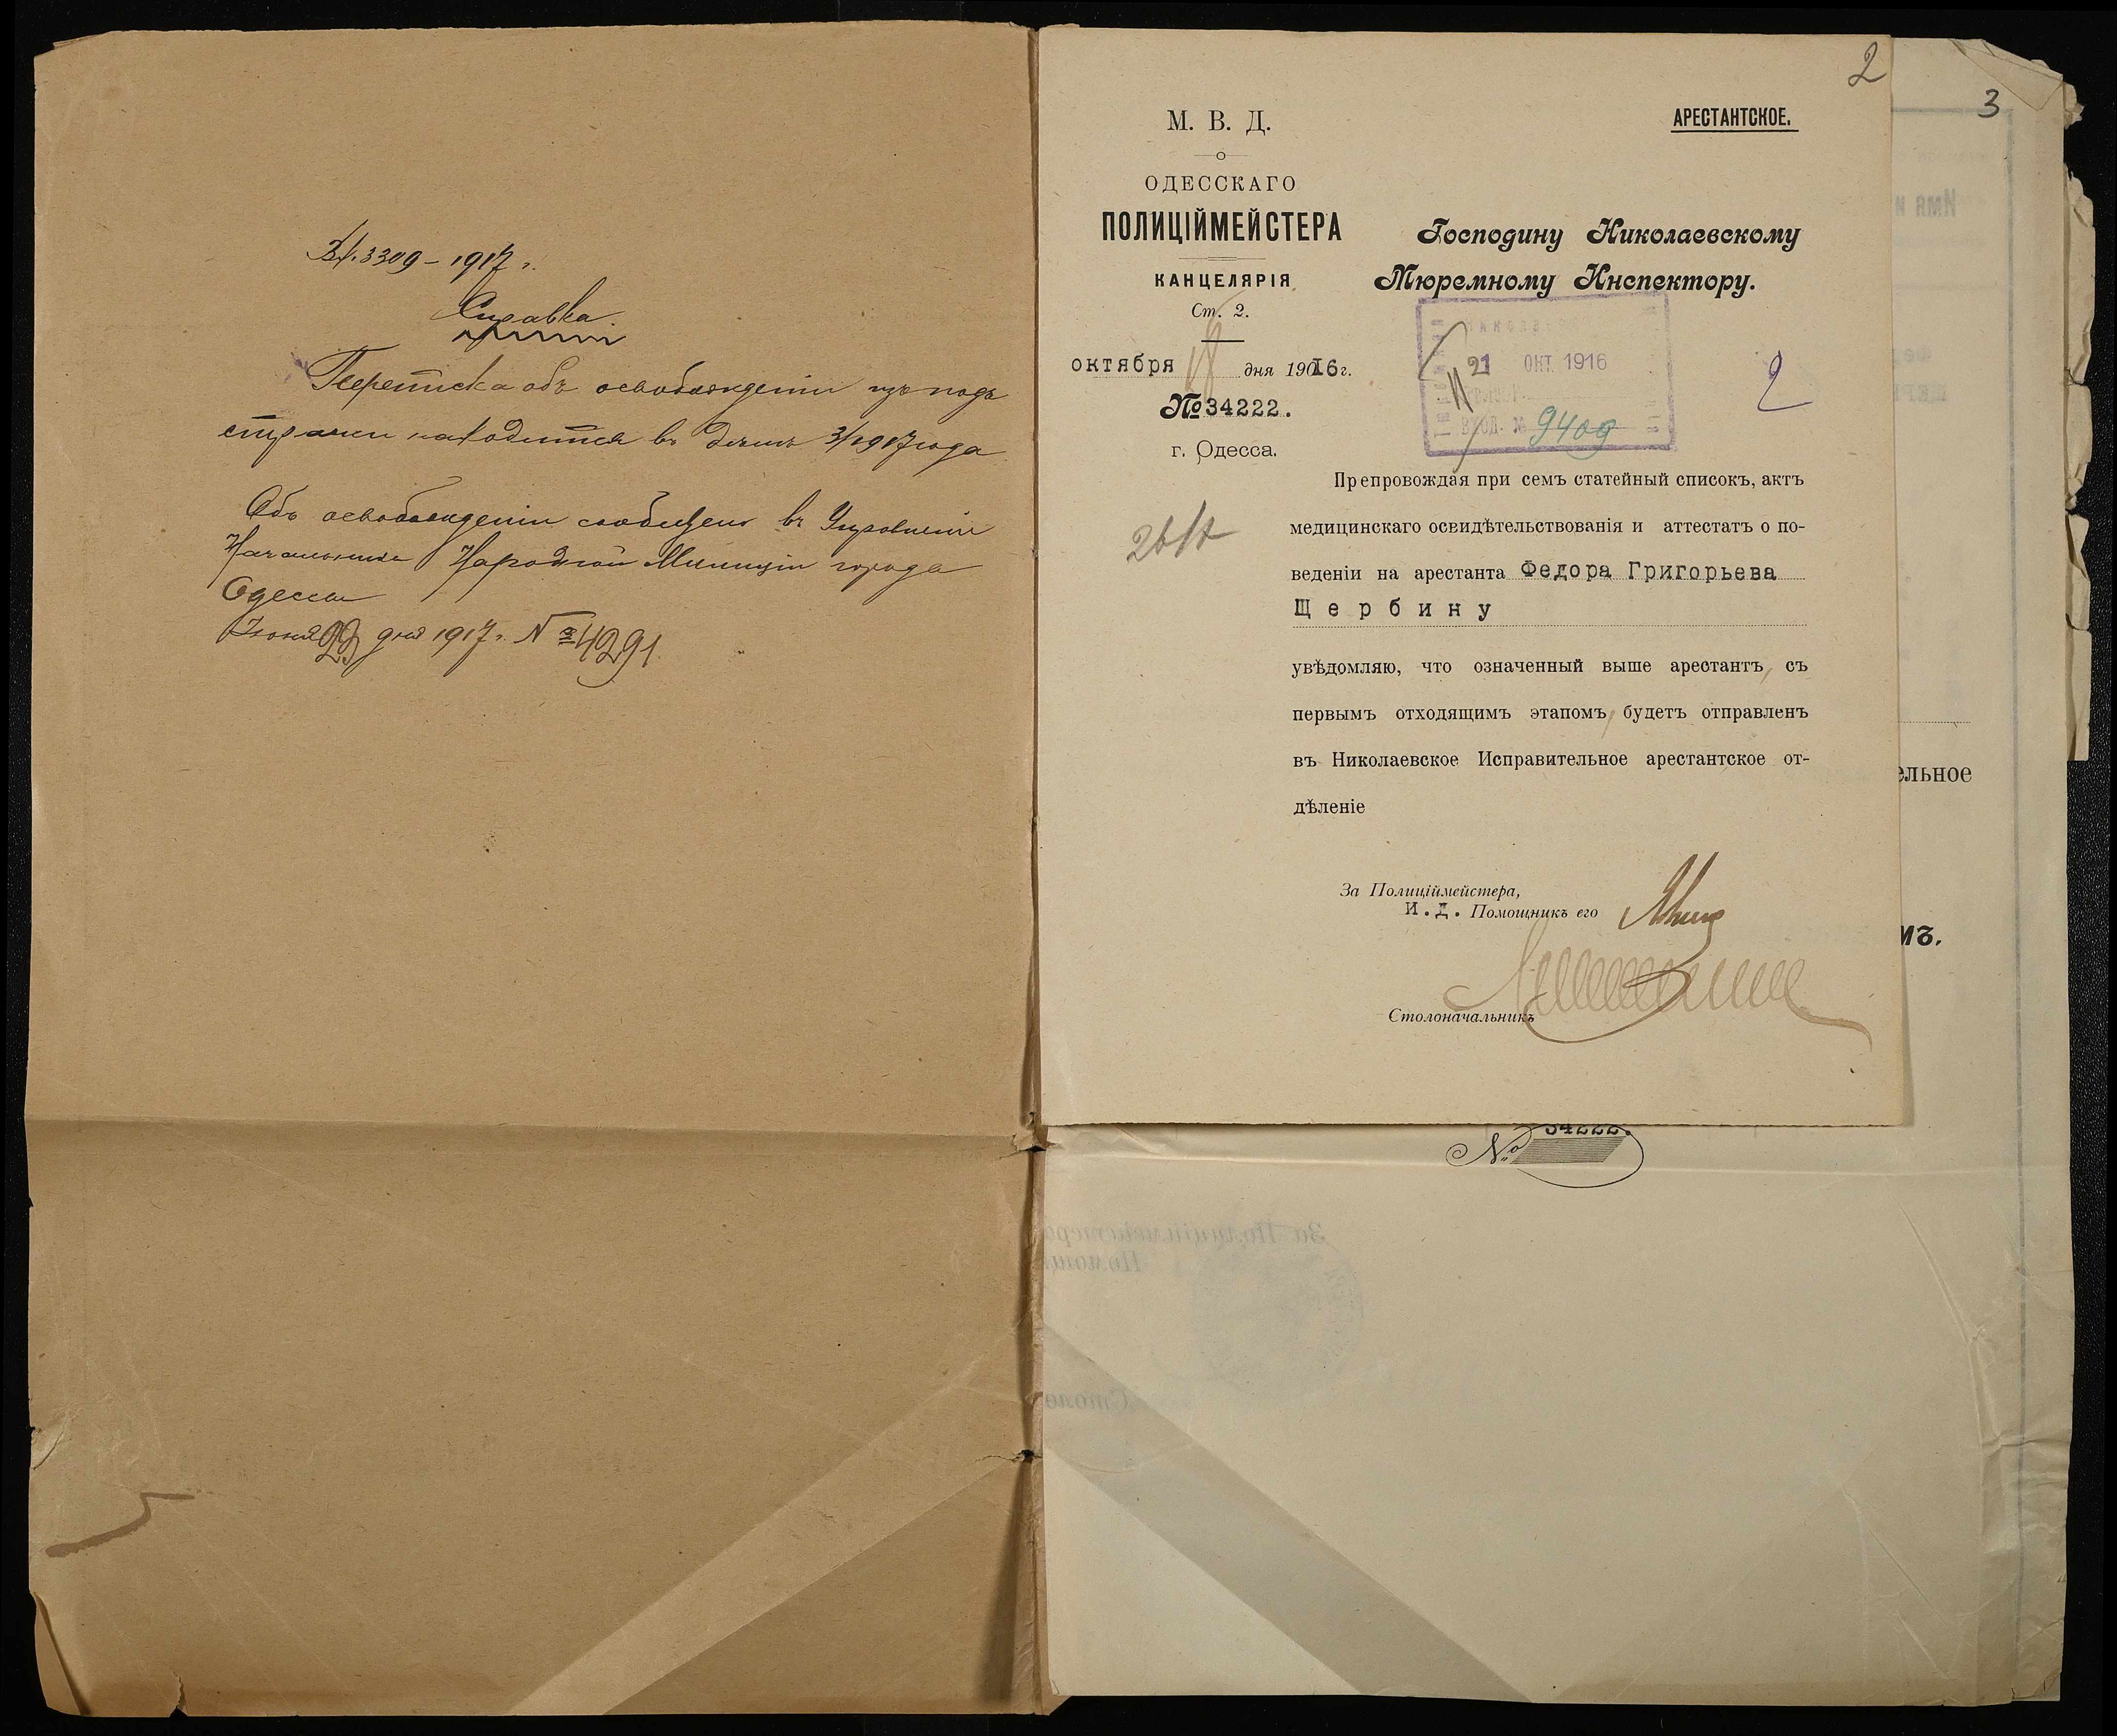 Вх. 3309 - 1917 г.
Справка
Переписка объ освобожденіи изъ подъ
стражи находится въ делѣ 3/1917 года
Объ освобожденіи сообщено въ Управленіе
Начальника Народной Милиціи города
Одессы
Іюня 23 дня 1917 г. № 4291
2
3
М. В. Д.
АРЕСТАНТСКОЕ.
ОДЕССКАГО
ПОЛИЦІЙМЕЙСТЕРА
КАНЦЕЛЯРІЯ
Ст. 2.
октября 18 дня 1916 г.
№ 34222.
г. Одесса.
Господину Николаевскому
Тюремному Инспектору.
21 ОКТ. 1916
ВХОД. № 9409
2
Препровождая при семъ статейный списокъ, актъ
медицинскаго освидѣтельствованія и аттестатъ о по-
веденіи на арестанта Федора Григорьева
Щербину
увѣдомляю, что означенный выше арестантъ, съ
первымъ отходящимъ этапомъ, будетъ отправленъ
въ Николаевское Исправительное арестантское от-
дѣленіе
За Полиційместера,
И.д. Помощникъ его
Столоначальникъ
ельное
мъ.
№ 34222.